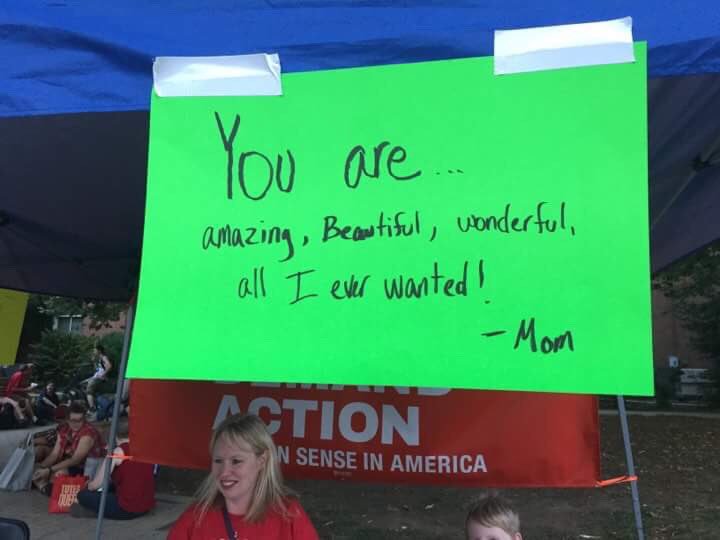 You are...
amazing, Beautiful, wonderful,
all I ever wanted!
- Mom
DEMAND
ACTION
N SENSE IN AMERICA
TOTES
QUEER